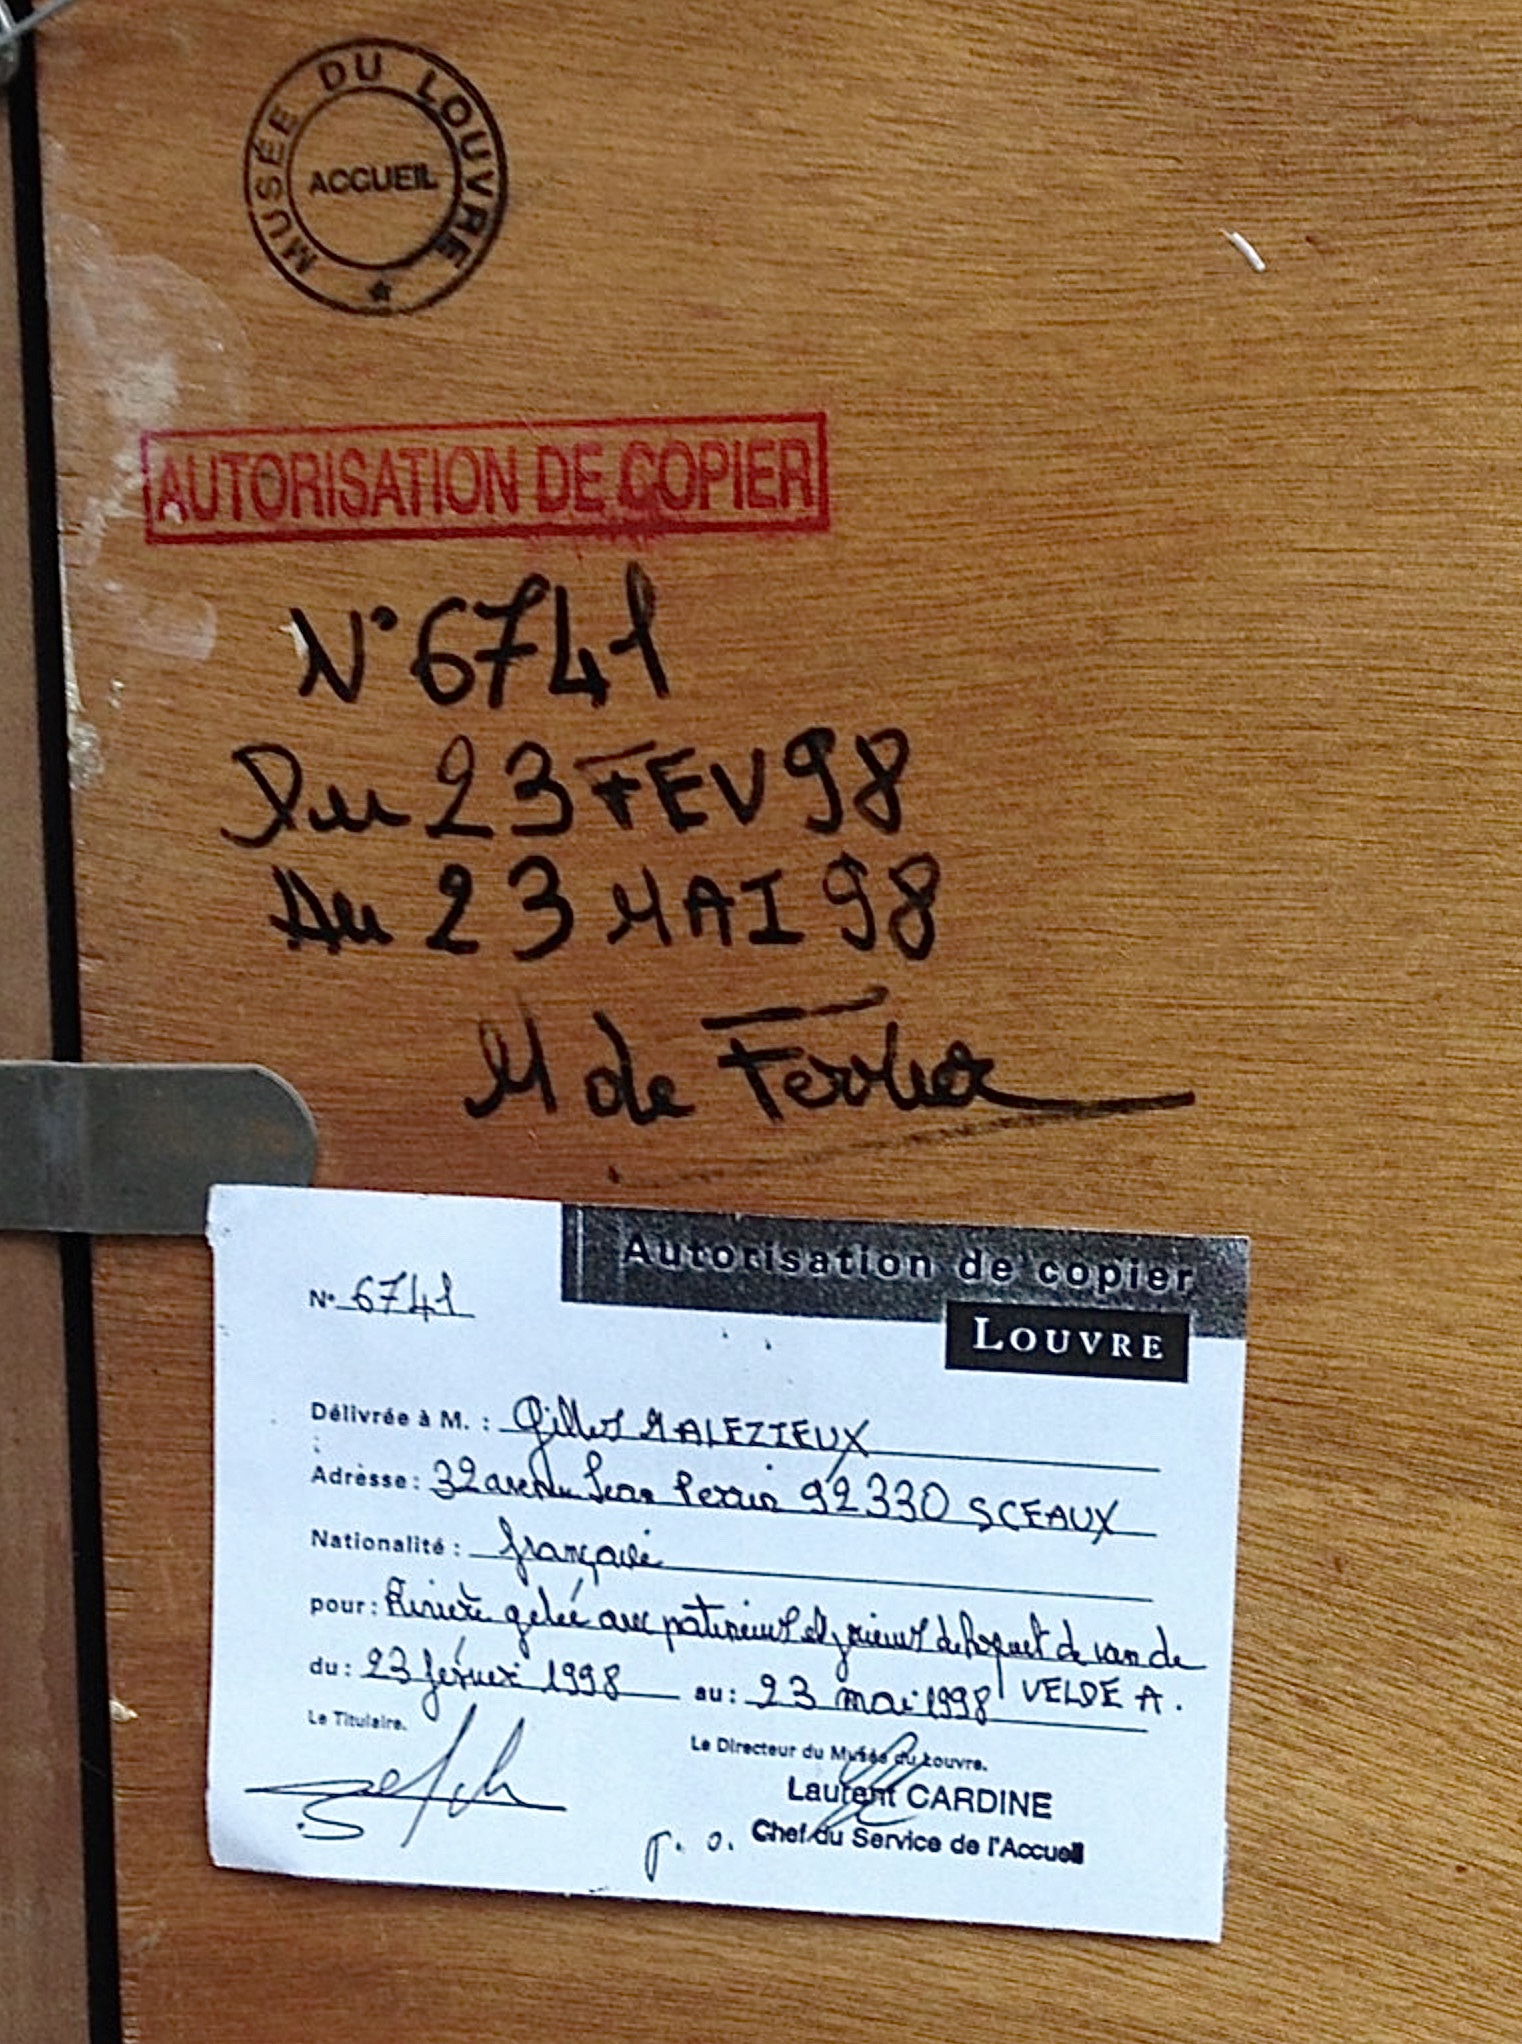 MUSÉE DU LOUVRE
ACCUEIL
AUTORISATION DE COPIER
N° 6741
Du 23 FEV 98
Au 23 MAI 98
M de
Autorisation de copier
LOUVRE
N° 6741
Délivrée à M. : Gilles MALEZIEUX
Adresse : 32 avenue Jean Perrin 92330 SCEAUX
Nationalité : française
pour : Rivière gelée avec patineurs et joueurs de hoquet de van de
VELDE A.
du : 23 février 1998 au : 23 mai 1998
Le Titulaire.
Le Directeur du Musée du Louvre.
Laurent CARDINE
p. o. Chef du Service de l'Accueil